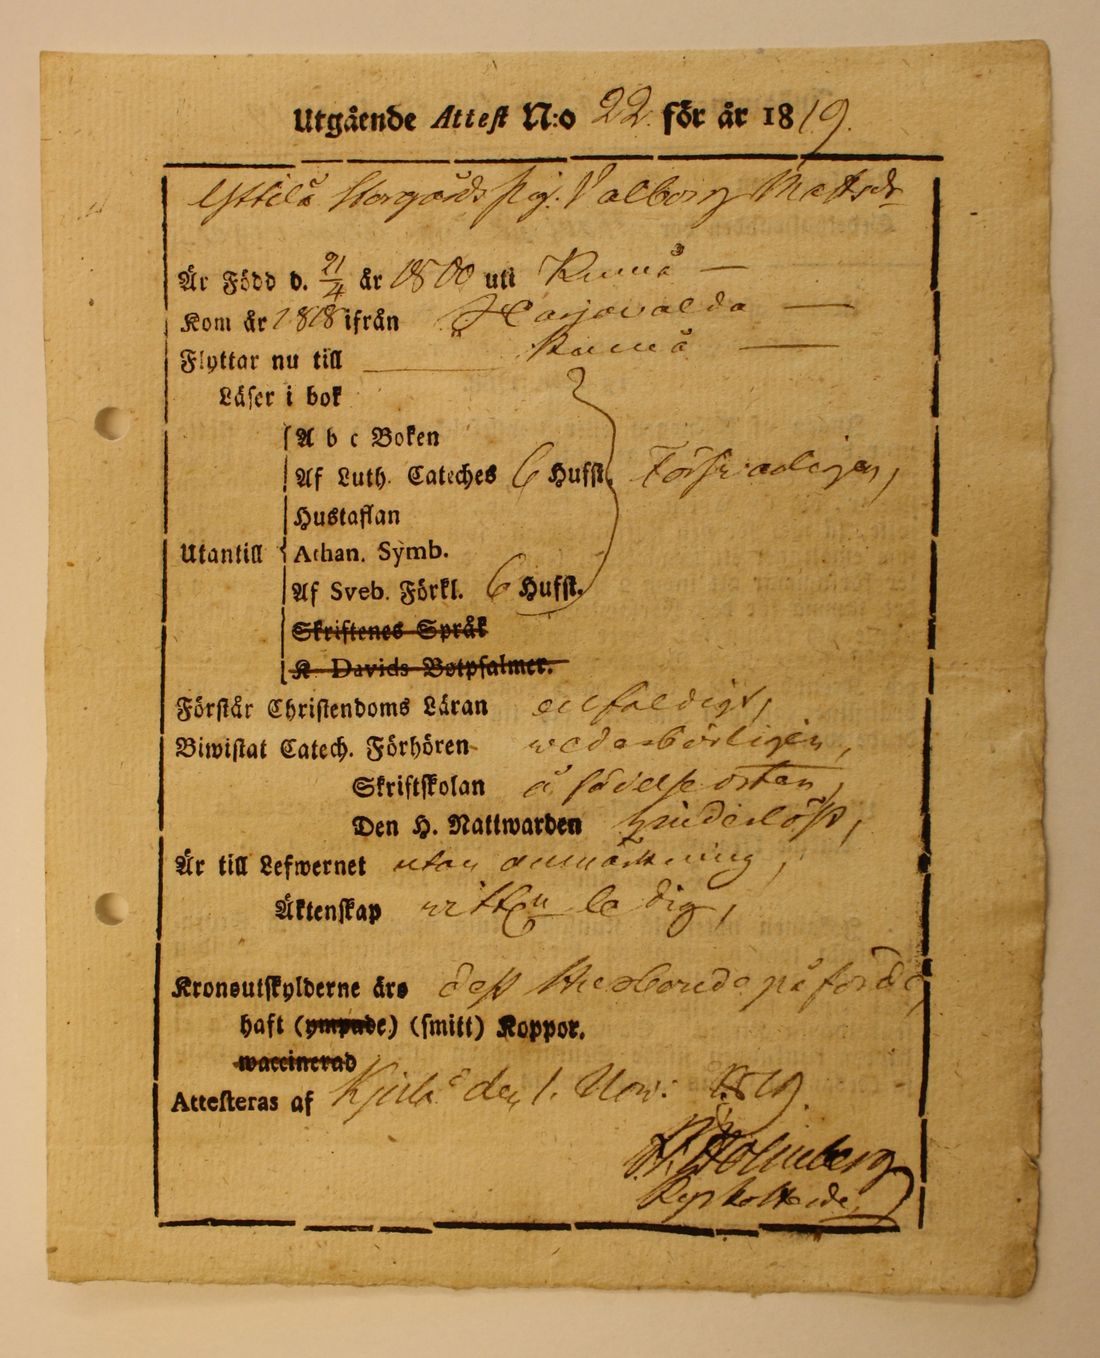 Utgående Attest N:o 22. för år 1819.
Yttilä Storgårds pig. Valborg Matsdr
Är Född d. 21/4 år 1800 uti Kumå —
Kom år 1818 ifrån Harjavalda —
Flyttar nu till Kumå —
Läser i bok
A b c Boken
Af Luth. Cateches 6 Hufst. Försvarligen,
Hustaflan
Utantill Athan. Symb.
Af Sveb. Förkl. 6 Hufst.
Skriftenes Språk
K. Davids Botpsalmer.
Förstår Christendoms Läran enfaldigt,
Biwistat Catech. Förhören wederbörligen,
Skriftskolan å födelse orten,
Den H. Nattwarden hinderlöst,
Är till Lefwernet utan anmärkning,
Äktenskap ledig,
Kronoutskylderne äro dess Husbonde påförde,
haft (ympade) (smitt) Koppor.
waccinerad
Attesteras af Kjulå den 1. Nov: 1819.
Holmberg